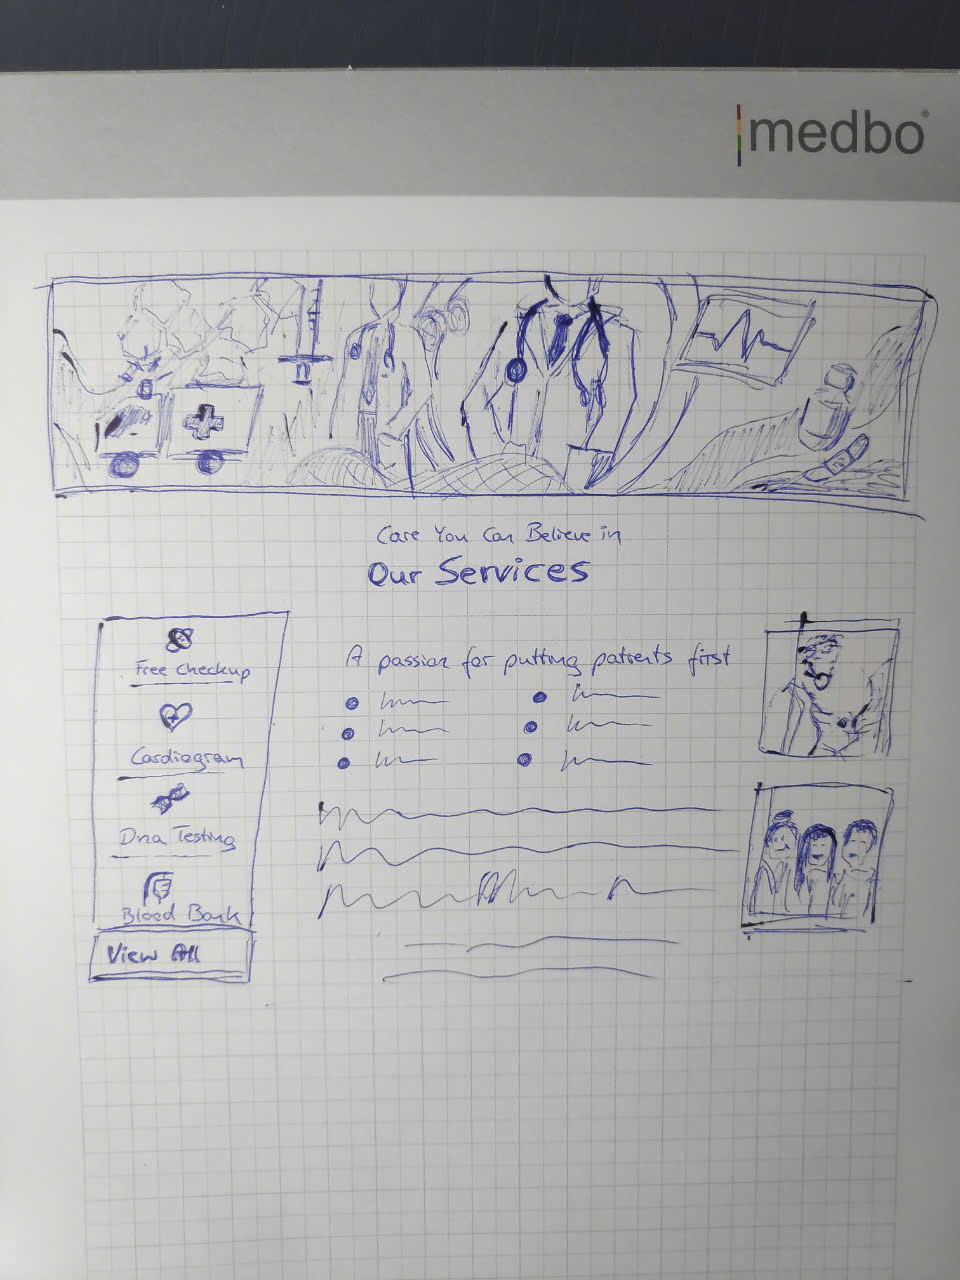 medbo®
Care You Can Believe in
Our Services
Free Checkup
Cardiogram
Dna Testing
Blood Bank
View All
A passion for putting patients first